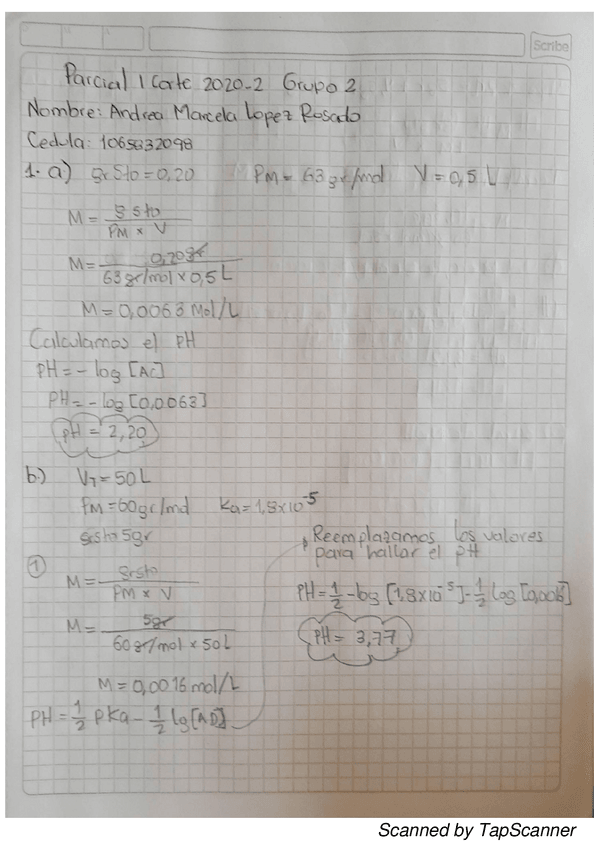 Scribe
Parcial 1 Corte 2020-2 Grupo 2
Nombre: Andrea Marcela Lopez Rosado
Cedula: 1065832098
1. a) grSto = 0,20 PM = 63 gr/mol V = 0,5 L
M = g sto / PM x V
M = 0,20gr / 63 gr/mol x 0,5 L
M = 0,0063 Mol/L
Calculamos el PH
PH = - log [AC]
PH = - log [0,0063]
pH = 2,20
b.) VT = 50 L
PM = 60 gr/mol Ka = 1,8x10^-5
grsto 5gr
① M = grsto / PM x V
M = 5gr / 60 gr/mol x 50 L
M = 0,0016 mol/L
PH = 1/2 PKa - 1/2 lg [AD]
Reemplazamos los valores
para hallar el PH
PH = 1/2 - log [1,8x10^-5] - 1/2 log [0,006]
PH = 3,77
Scanned by TapScanner